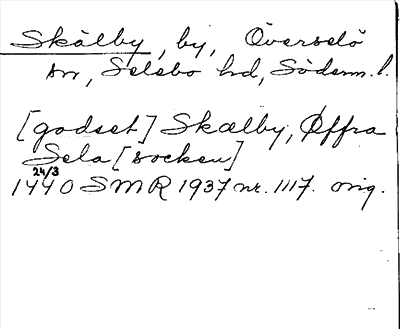 Skälby, by, Överselö
sn, Selebo hd, Söderm. l.
[godset] Skælby, Øffra
Sela [socken]
24/3
1440 SMR 1937 nr. 1117. orig.